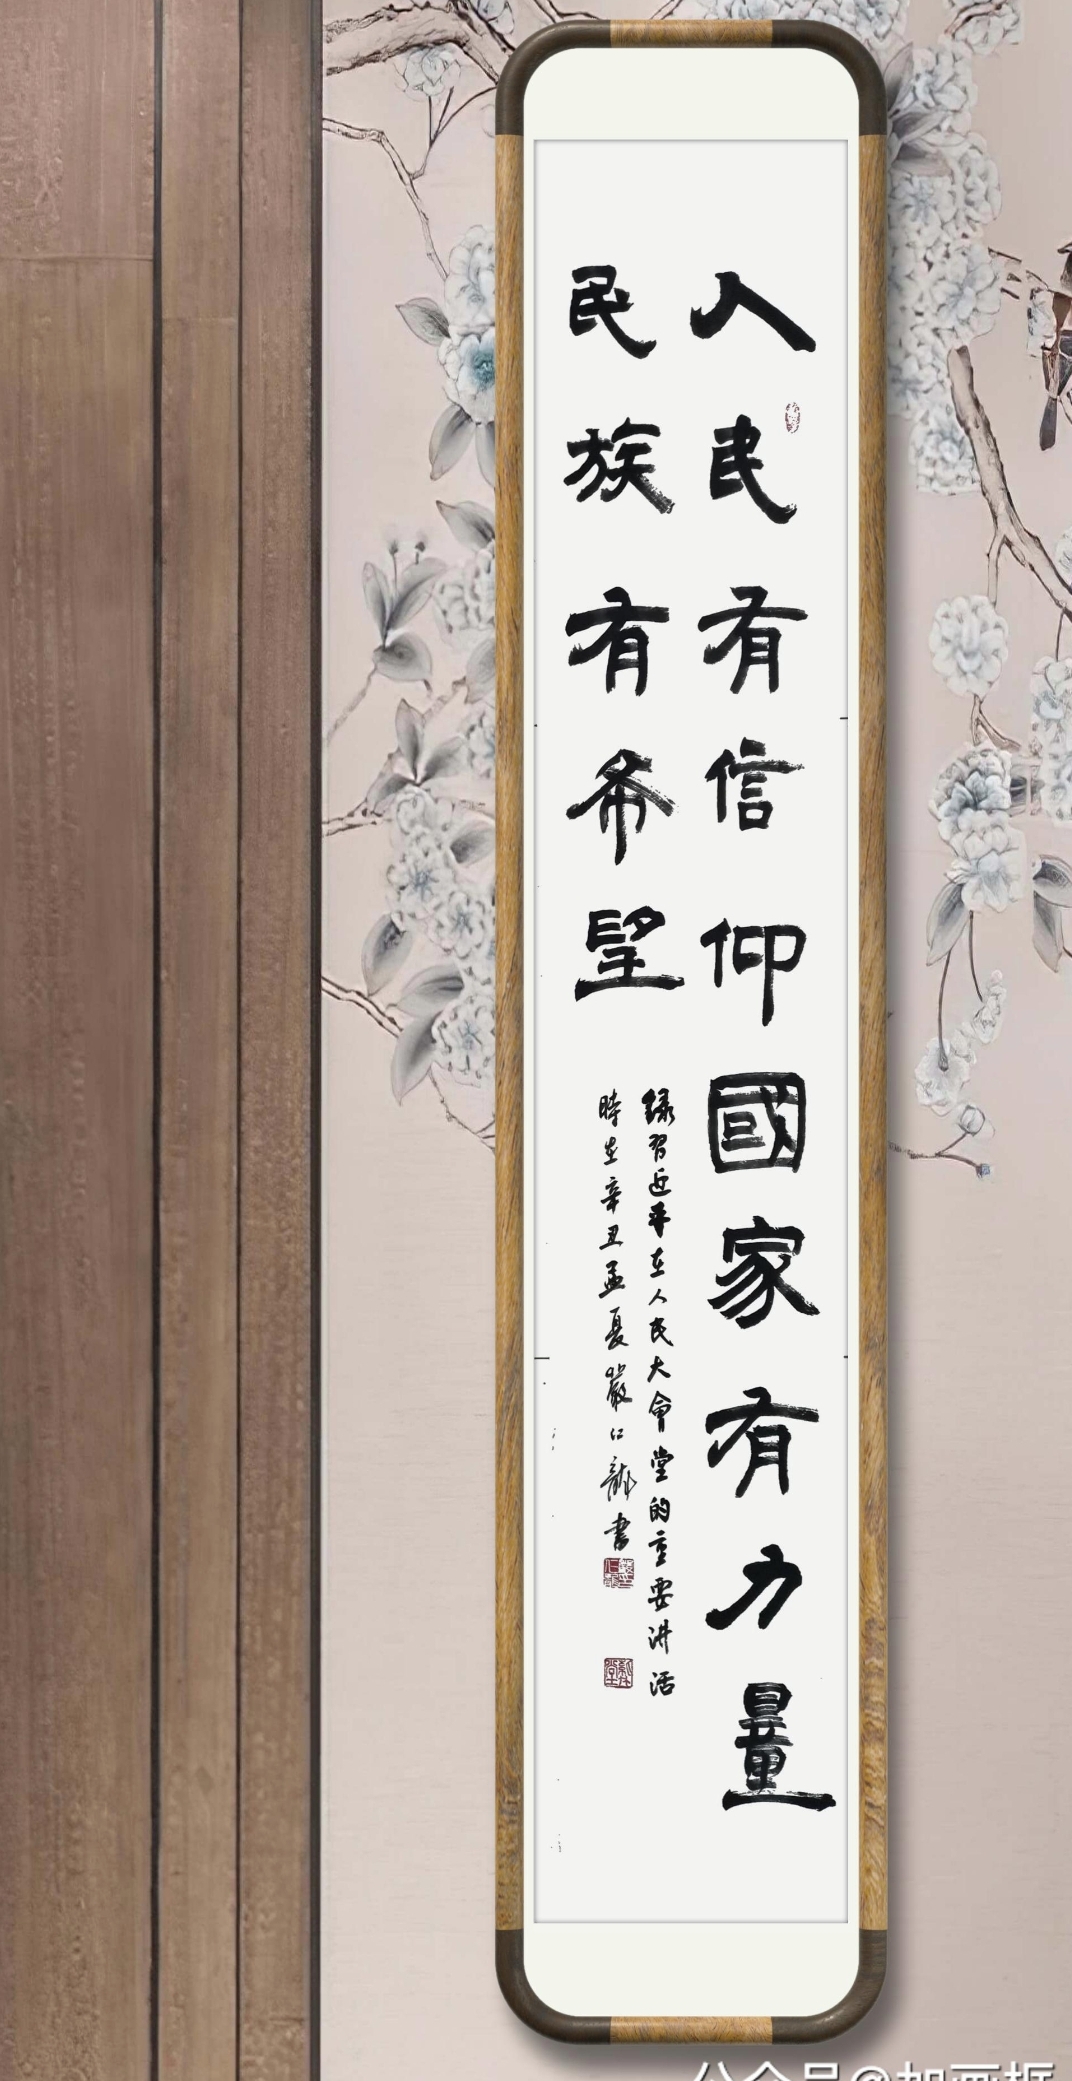 人民有信仰國家有力量
民族有希望
錄習近平在人民大會堂的重要讲话
時在辛丑孟夏嚴仁龍書
公众号@加画框